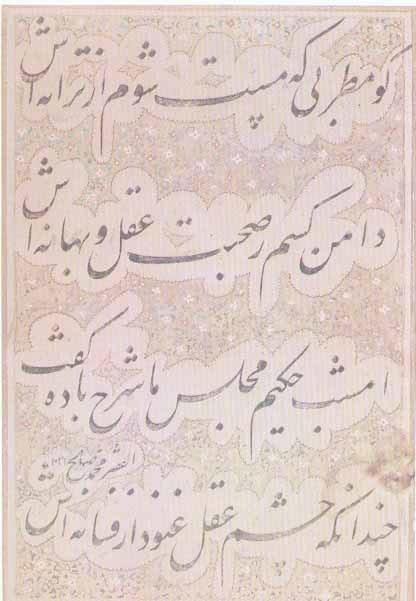 کو مطربی که مست شوم از ترانه‌اش
دامن کشم ز صحبت عقل و بهانه‌اش
امشب حکیم مجلس ما شرح باده گفت
الفقیر محمد صالح
چندانکه چشم عقل غنود از فسانه‌اش